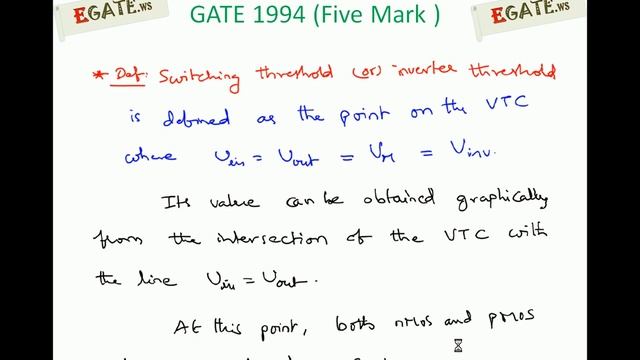 EGATE.ws
GATE 1994 (Five Mark )
EGATE.ws
* Def: Switching threshold (or) inverter threshold
is defined as the point on the VTC
where Vin = Vout = VM = Vinv.
Its value can be obtained graphically
from the intersection of the VTC with
the line Vin = Vout.
At this point, both nMOS and pMOS